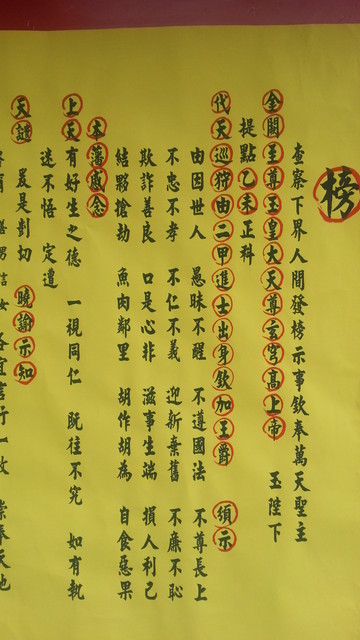 榜
查察下界人間發榜示事欽奉萬天聖主
金闕至尊玉皇大天尊玄穹高上帝 玉陛下
提點乙未正科
代天巡狩由二甲進士出身欽加王爵 須示
由因世人 愚昧不醒 不遵國法 不尊長上
不忠不孝 不仁不義 迎新棄舊 不廉不恥
欺詐善良 口是心非 滋事生端 損人利己
結夥搶劫 魚肉鄰里 胡作胡為 自食惡果
本藩感念
上天有好生之德 一視同仁 既往不究 如有執
迷不悟 定遭
天譴 爰是剴切 曉諭示知
善男信女 各宜言行一致 崇奉天地